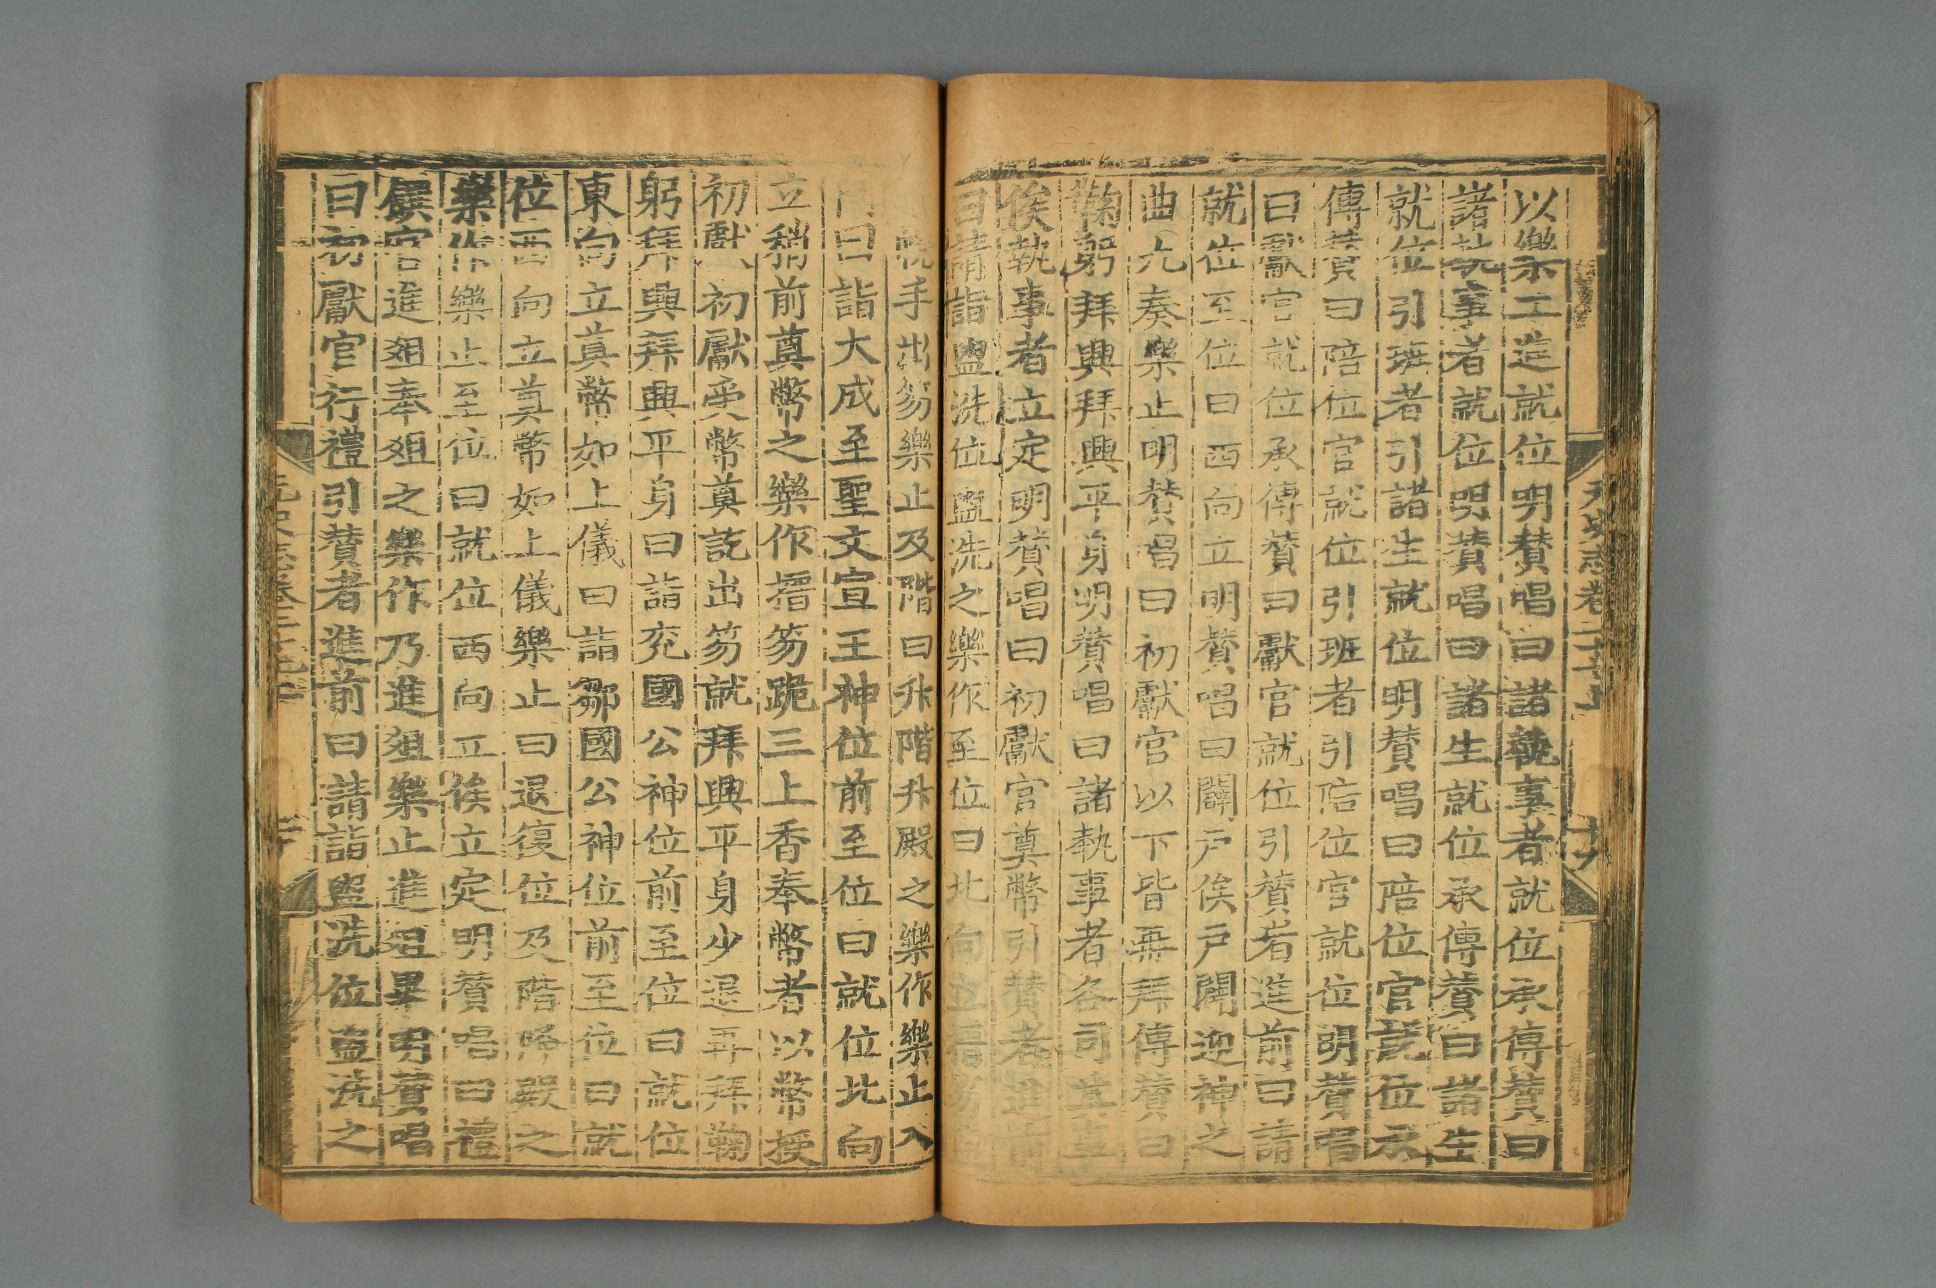 以樂工進就位明賛唱曰諸執事者就位承傳賛曰
諸執事者就位明賛唱曰諸生就位承傳賛曰諸生
就位引班者引諸生就位明賛唱曰陪位官就位承
傳賛曰陪位官就位引班者引陪位官就位明賛唱
曰獻官就位承傳賛曰獻官就位引賛者進前曰請
就位至位曰西向立明賛唱曰闢戶俟戶闢迎神之
曲九奏樂止明賛唱曰初獻官以下皆再拜傳賛曰
鞠躬拜興拜興平身明賛唱曰諸執事者各司其事
俟執事者立定明賛唱曰初獻官奠幣引賛者進前
曰請詣盥洗位盥洗之樂作至位曰北向立搢笏
帨手出笏樂止及階曰升階升殿之樂作樂止入
門曰詣大成至聖文宣王神位前至位曰就位北向
立稍前奠幣之樂作搢笏跪三上香奉幣者以幣授
初獻初獻受幣奠訖出笏就拜興平身少退再拜鞠
躬拜興拜興平身曰詣兖國公神位前至位曰就位
東向立奠幣如上儀曰詣鄒國公神位前至位曰就
位西向立奠幣如上儀樂止曰退復位及階降殿之
樂作樂止至位曰就位西向立俟立定明賛唱曰禮
饌官進爼奉爼之樂作乃進爼樂止進爼畢明賛唱
曰初獻官行禮引賛者進前曰請詣盥洗位盥洗之
元史志卷二十七上
十九
元史志卷二十七上
二十